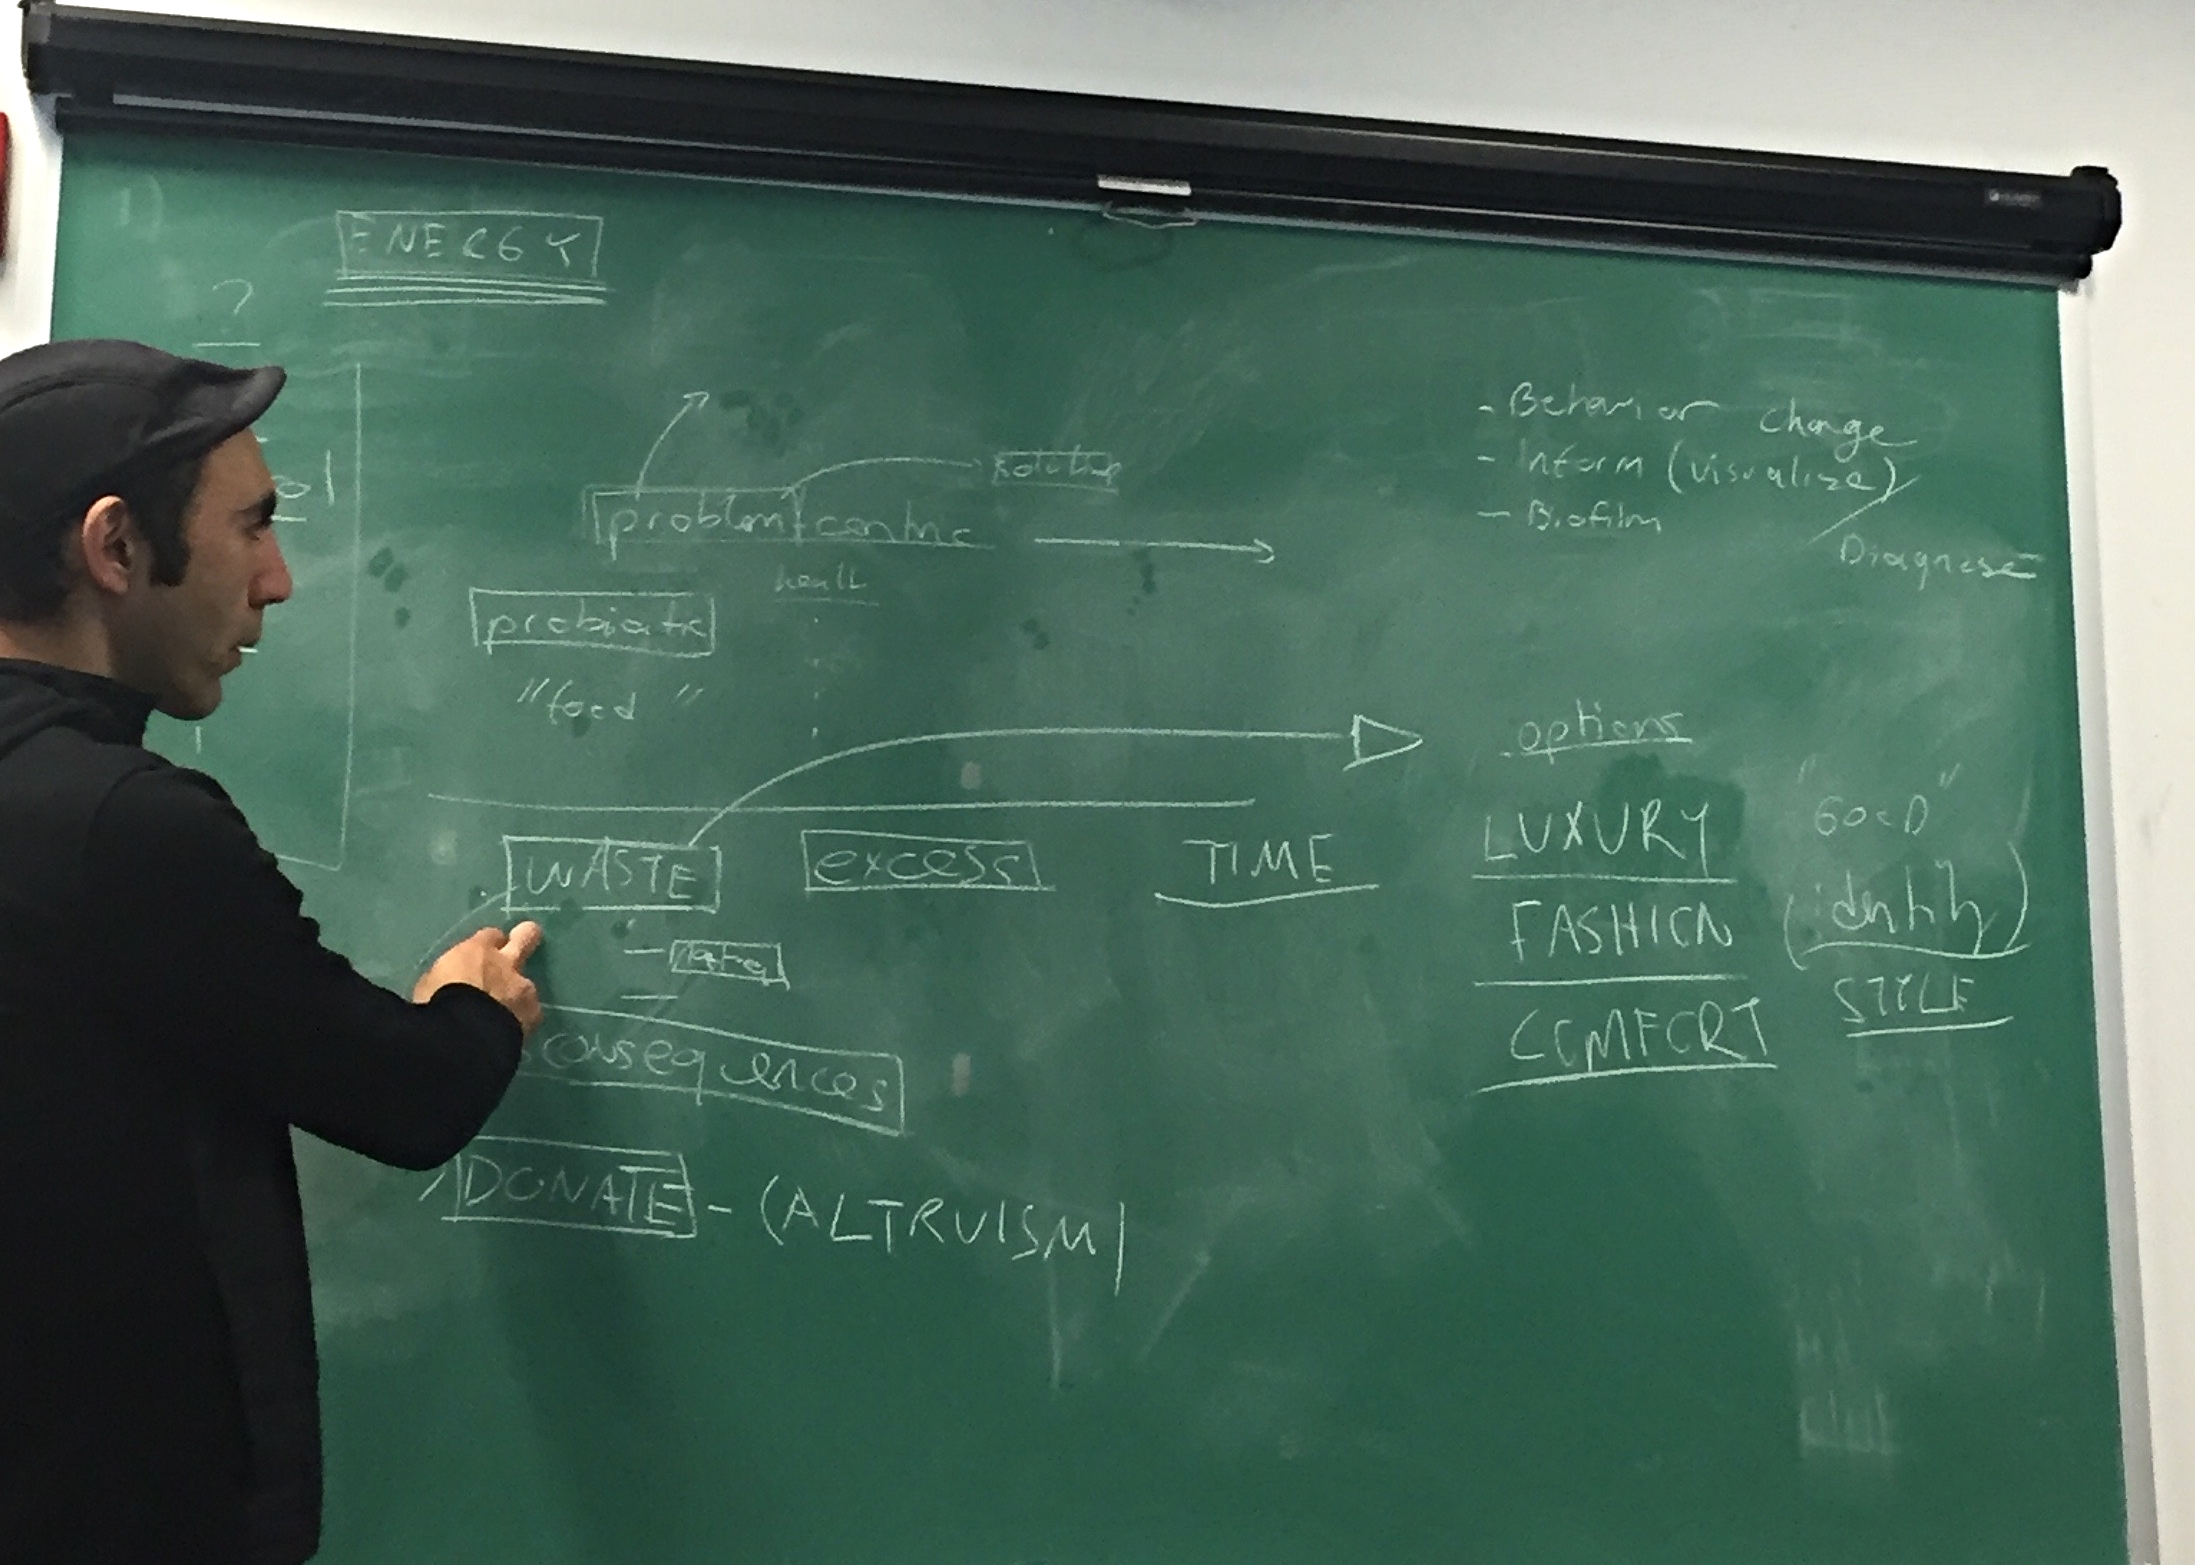 1)
ENERGY
?
ol
- Behavior change
- Inform (visualize)
- Biofilm
Diagnose
solution
problem centric
health
probiotic
"food"
options
WASTE
excess
TIME
LUXURY
"GOOD"
FASHION
(identity)
COMFORT
STYLE
consequences
DONATE - (ALTRUISM)